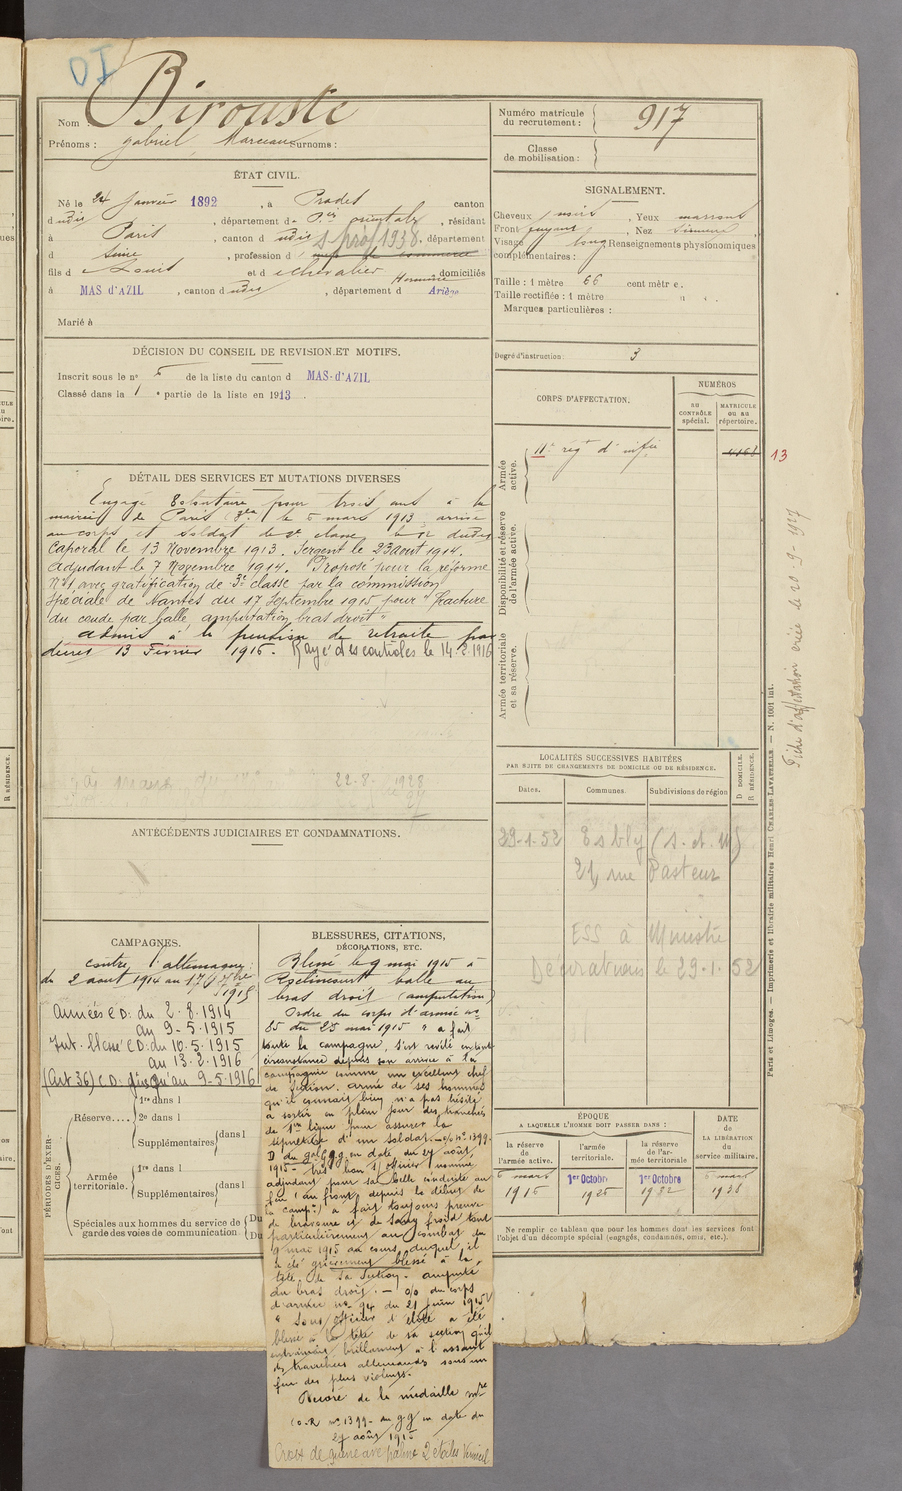 DI
Nom : Birouste
Prénoms : Gabriel Marceau Surnoms :
ÉTAT CIVIL.
Né le 24 Janvier 1892, à Prades canton
dudit, département d Pées orientales, résidant
à Paris, canton d udit S prof 1938. département
d Seine, profession d empé de commerce
fils d Louis et d Chevalier Hermine domiciliés
à MAS d'AZIL, canton dudit, département d Ariège
Marié à
DÉCISION DU CONSEIL DE REVISION ET MOTIFS.
Inscrit sous le no 5 de la liste du canton d MAS-d'AZIL
Classé dans la 1 e partie de la liste en 1913.
DÉTAIL DES SERVICES ET MUTATIONS DIVERSES
Engagé Volontaire pour trois ans à la
mairie de Paris le 5 mars 1913 arrivé
au corps et soldat de 2e classe le dudit
Caporal le 13 Novembre 1913. Sergent le 23 aout 1914.
Adjudant le 7 Novembre 1914. Proposé pour la réforme
No 1 avec gratification de 3e classe par la commission
spéciale de Nantes du 17 Septembre 1915 pour "fracture
du coude par balle, amputation bras droit"
admis à la pension de retraite par
décret 13 Février 1916. Rayé des contrôles le 14-2-1916
22-8-1928
ANTÉCÉDENTS JUDICIAIRES ET CONDAMNATIONS.
CAMPAGNES.
contre l'allemagne :
du 2 aout 1914 au 17 7bre
1915
Années C D: du 2.8.1914
au 9-5-1915
Int. blessé C D: du 10.5.1915
au 13.2.1916
(Art 36) C D: jusqu'au 9-5-1916
PÉRIODES D'EXERCICES.
Réserve....
1re dans l
2e dans l
Supplémentaires dans l
Armée territoriale.
1re dans l
Supplémentaires dans l
Spéciales aux hommes du service de Du
garde des voies de communication Du
BLESSURES, CITATIONS,
DÉCORATIONS, ETC.
Blessé le 9 mai 1915 à
Roclincourt balle au
bras droit (amputation)
Ordre du corps d'armée no
85 du 25 mai 1915 "a fait
toute la campagne, s'est révélé en tout
circonstance depuis son arrivée à la
compagnie comme un excellent chef
de section, aimé de ses hommes
qu'il connait bien, n'a pas hésité
à sortir en plein jour des tranchées
de 1ère ligne pour assurer la
sépulture d'un soldat. — o/o no 1399.
D du gal GQG en date du 27 août
1915 - très bon s/officier nommé
adjudant pour sa belle conduite au
feu (au front depuis le début de
la campe) a fait toujours preuve
de bravoure et de sang froid tout
particulièrement au combat du
9 mai 1915 au cours duquel il
a été grièvement blessé à la
tête de sa section. amputé
du bras droit. — o/o du corps
d'armée no 94 du 21 juin 1915
" Sous officier d'élite a été
blessé à la tête de sa section qu'il
entrainait brillamment à l'assaut
des tranchées allemandes sous un
feu des plus violents.
Décoré de la médaille mre
(O.R no 1399 - du gg en date du
27 août 1915
Croix de guerre avec palme 2 étoiles Vermeil
Numéro matricule du recrutement : 917
Classe de mobilisation :
SIGNALEMENT.
Cheveux noirs, Yeux marrons
Front fuyant, Nez
Visage long Renseignements physionomiques
complémentaires :
Taille : 1 mètre 66 centimètres.
Taille rectifiée : 1 mètre
Marques particulières :
Degré d'instruction : 3
CORPS D'AFFECTATION.
NUMÉROS
AU CONTRÔLE spécial.
MATRICULE ou au répertoire.
Armée active.
11e régt d'infie
13
Disponibilité et réserve de l'armée active.
Armée territoriale et sa réserve.
LOCALITÉS SUCCESSIVES HABITÉES
PAR SUITE DE CHANGEMENTS DE DOMICILE OU DE RÉSIDENCE.
Dates. Communes. Subdivisions de région
D. DOMICILE. R. RÉSIDENCE.
29-1-52 Esbly (S. et M)
21, rue Pasteur
ESS à Ministre
Décorations le 29-1-52
ÉPOQUE
A LAQUELLE L'HOMME DOIT PASSER DANS :
DATE DE LA LIBÉRATION du service militaire.
la réserve de l'armée active.
l'armée territoriale.
la réserve de l'armée territoriale
5 mars 1916
1er Octobre 1926
1er Octobre 1932
5 mars 1938
Ne remplir ce tableau que pour les hommes dont les services font
l'objet d'un décompte spécial (engagés, condamnés, omis, etc.).
Paris et Limoges. — Imprimerie et librairie militaires Henri CHARLES-LAVAUZELLE — N. 1001 int.
Fiche d'affectation créée le 20-9-1927